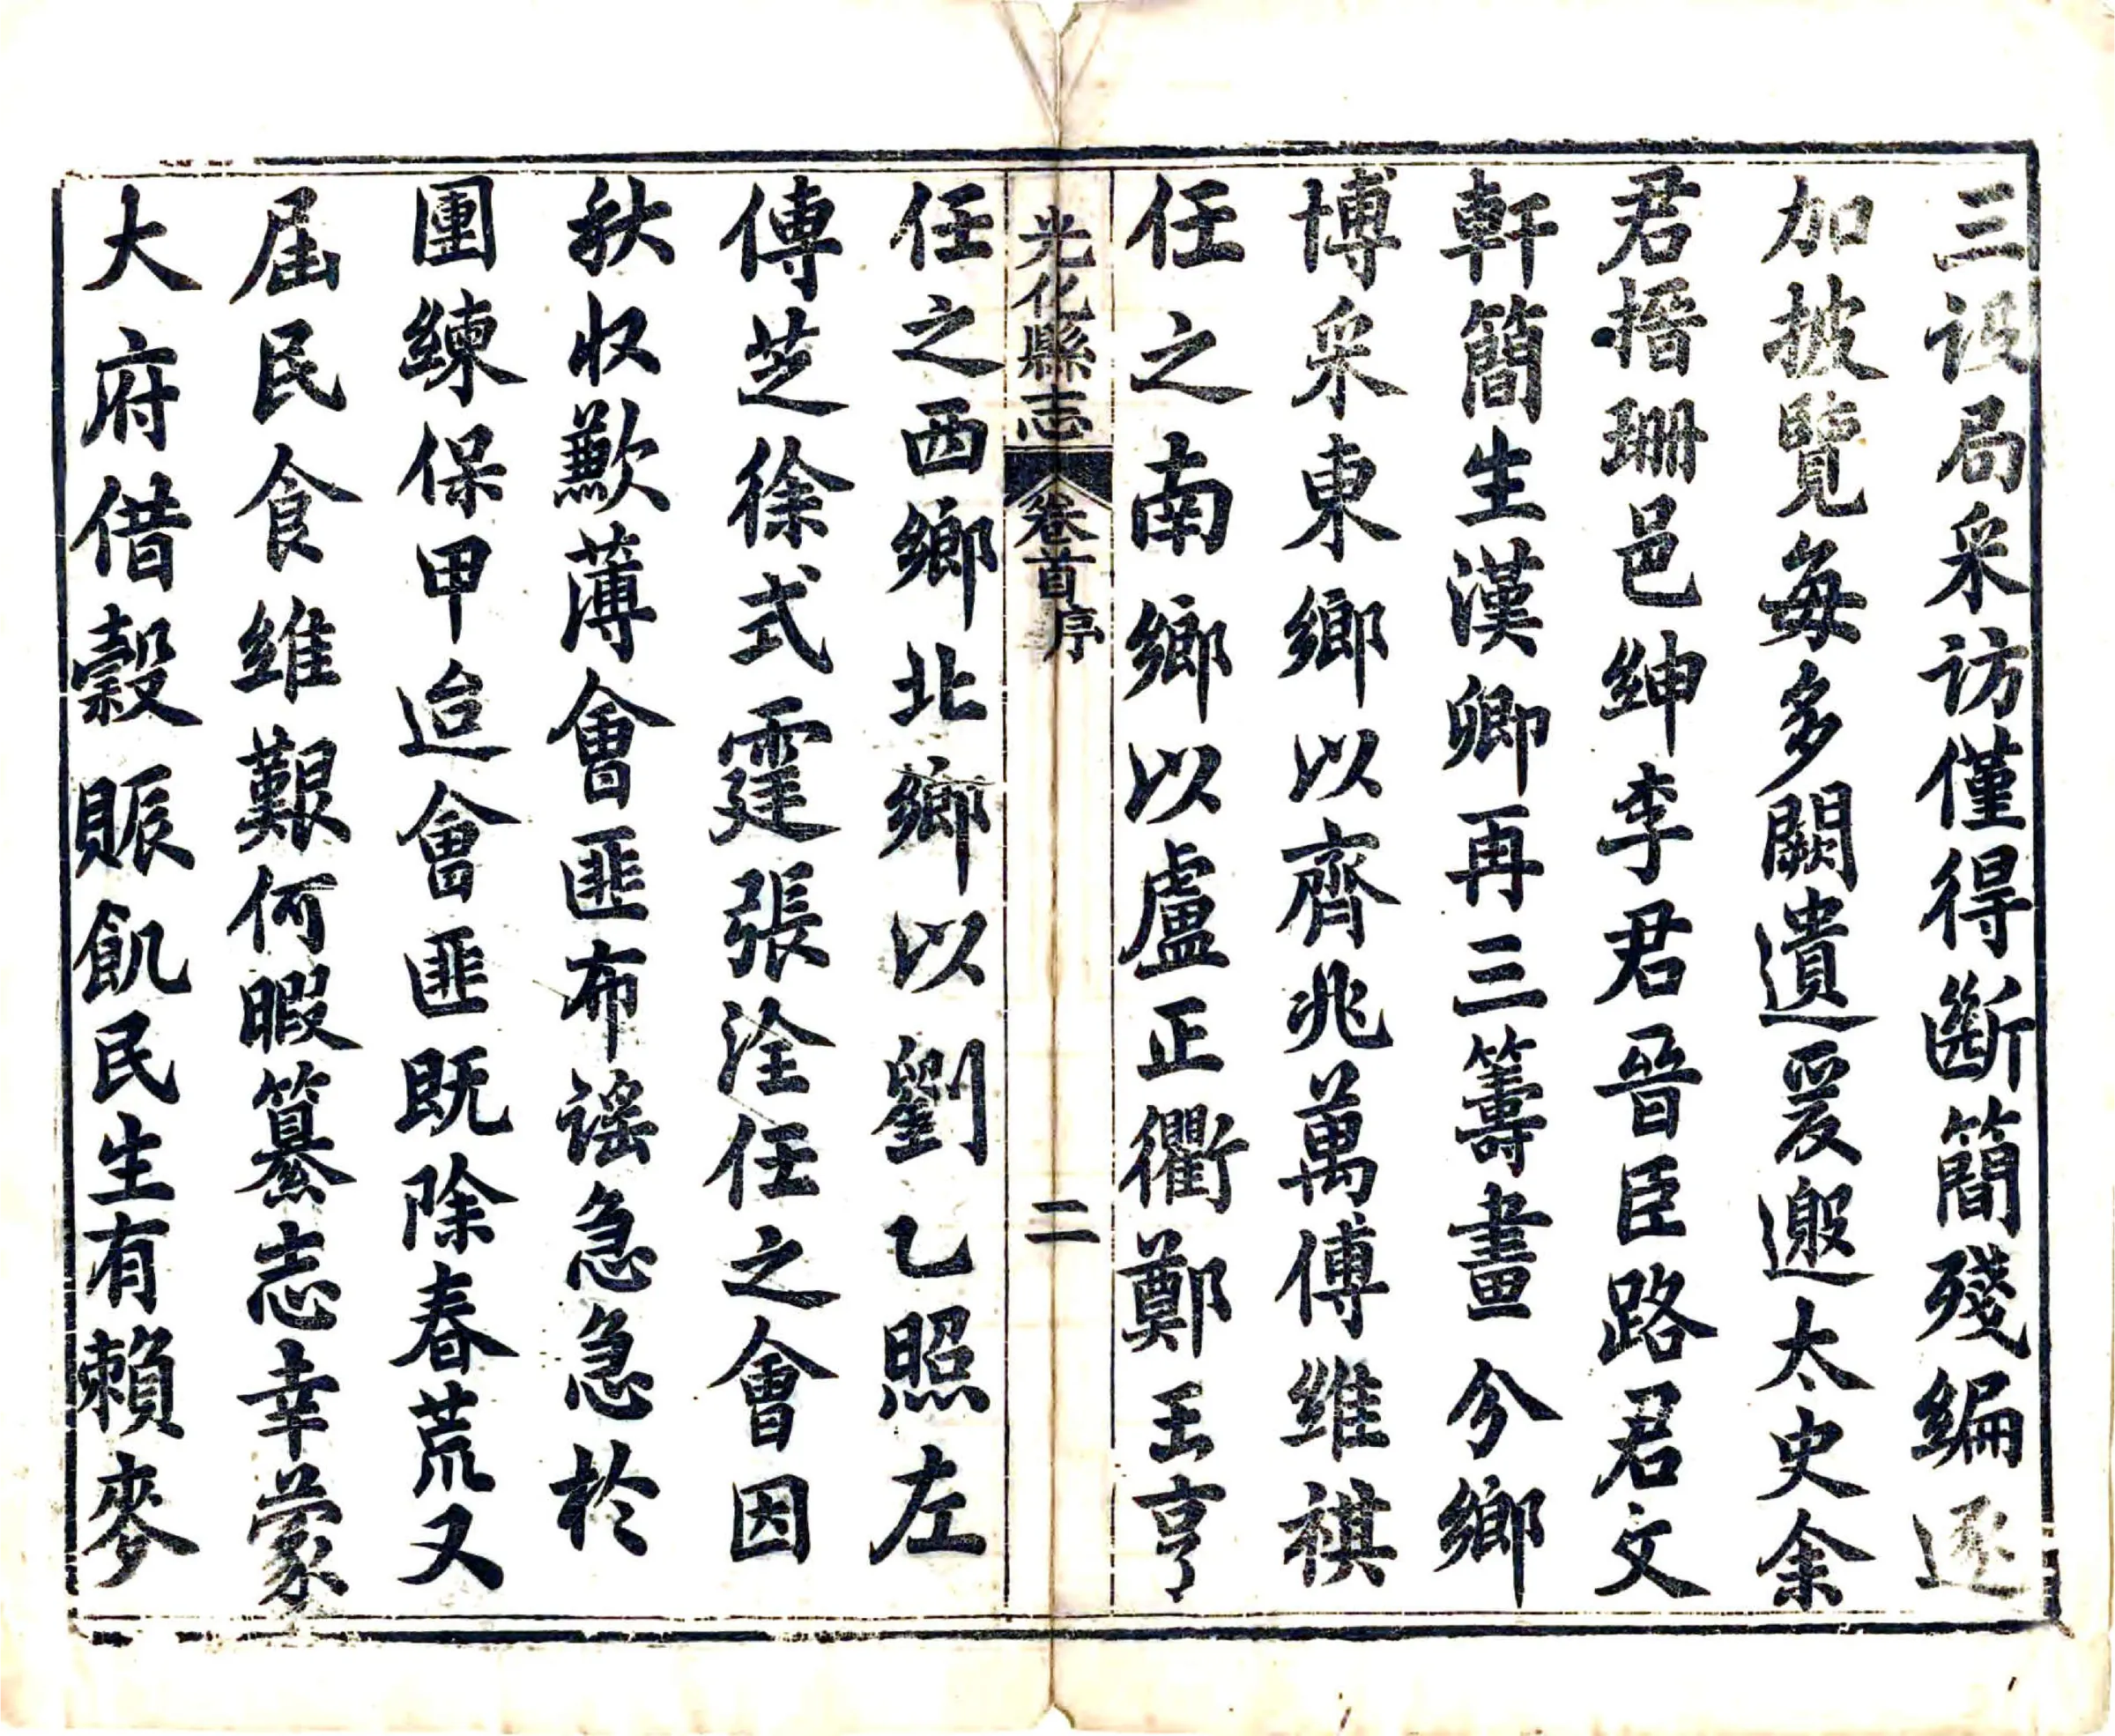 三設局采访僅得斷簡殘编逐
加披覽每多闕遺爰邀太史余
君搢珊邑紳李君晉臣路君文
軒簡生漢卿再三籌畫分鄉
博采東鄉以齊兆萬傅维祺
任之南鄉以盧正衢鄭王亨
光化縣志 卷首 序 二
任之西鄉北鄉以劉乙照左
傅芝徐式霆張淦任之會因
秋收歉薄會匪布谣急急於
團練保甲迨會匪既除春荒又
届民食维艱何暇纂志幸蒙
大府借穀賑飢民生有賴麥